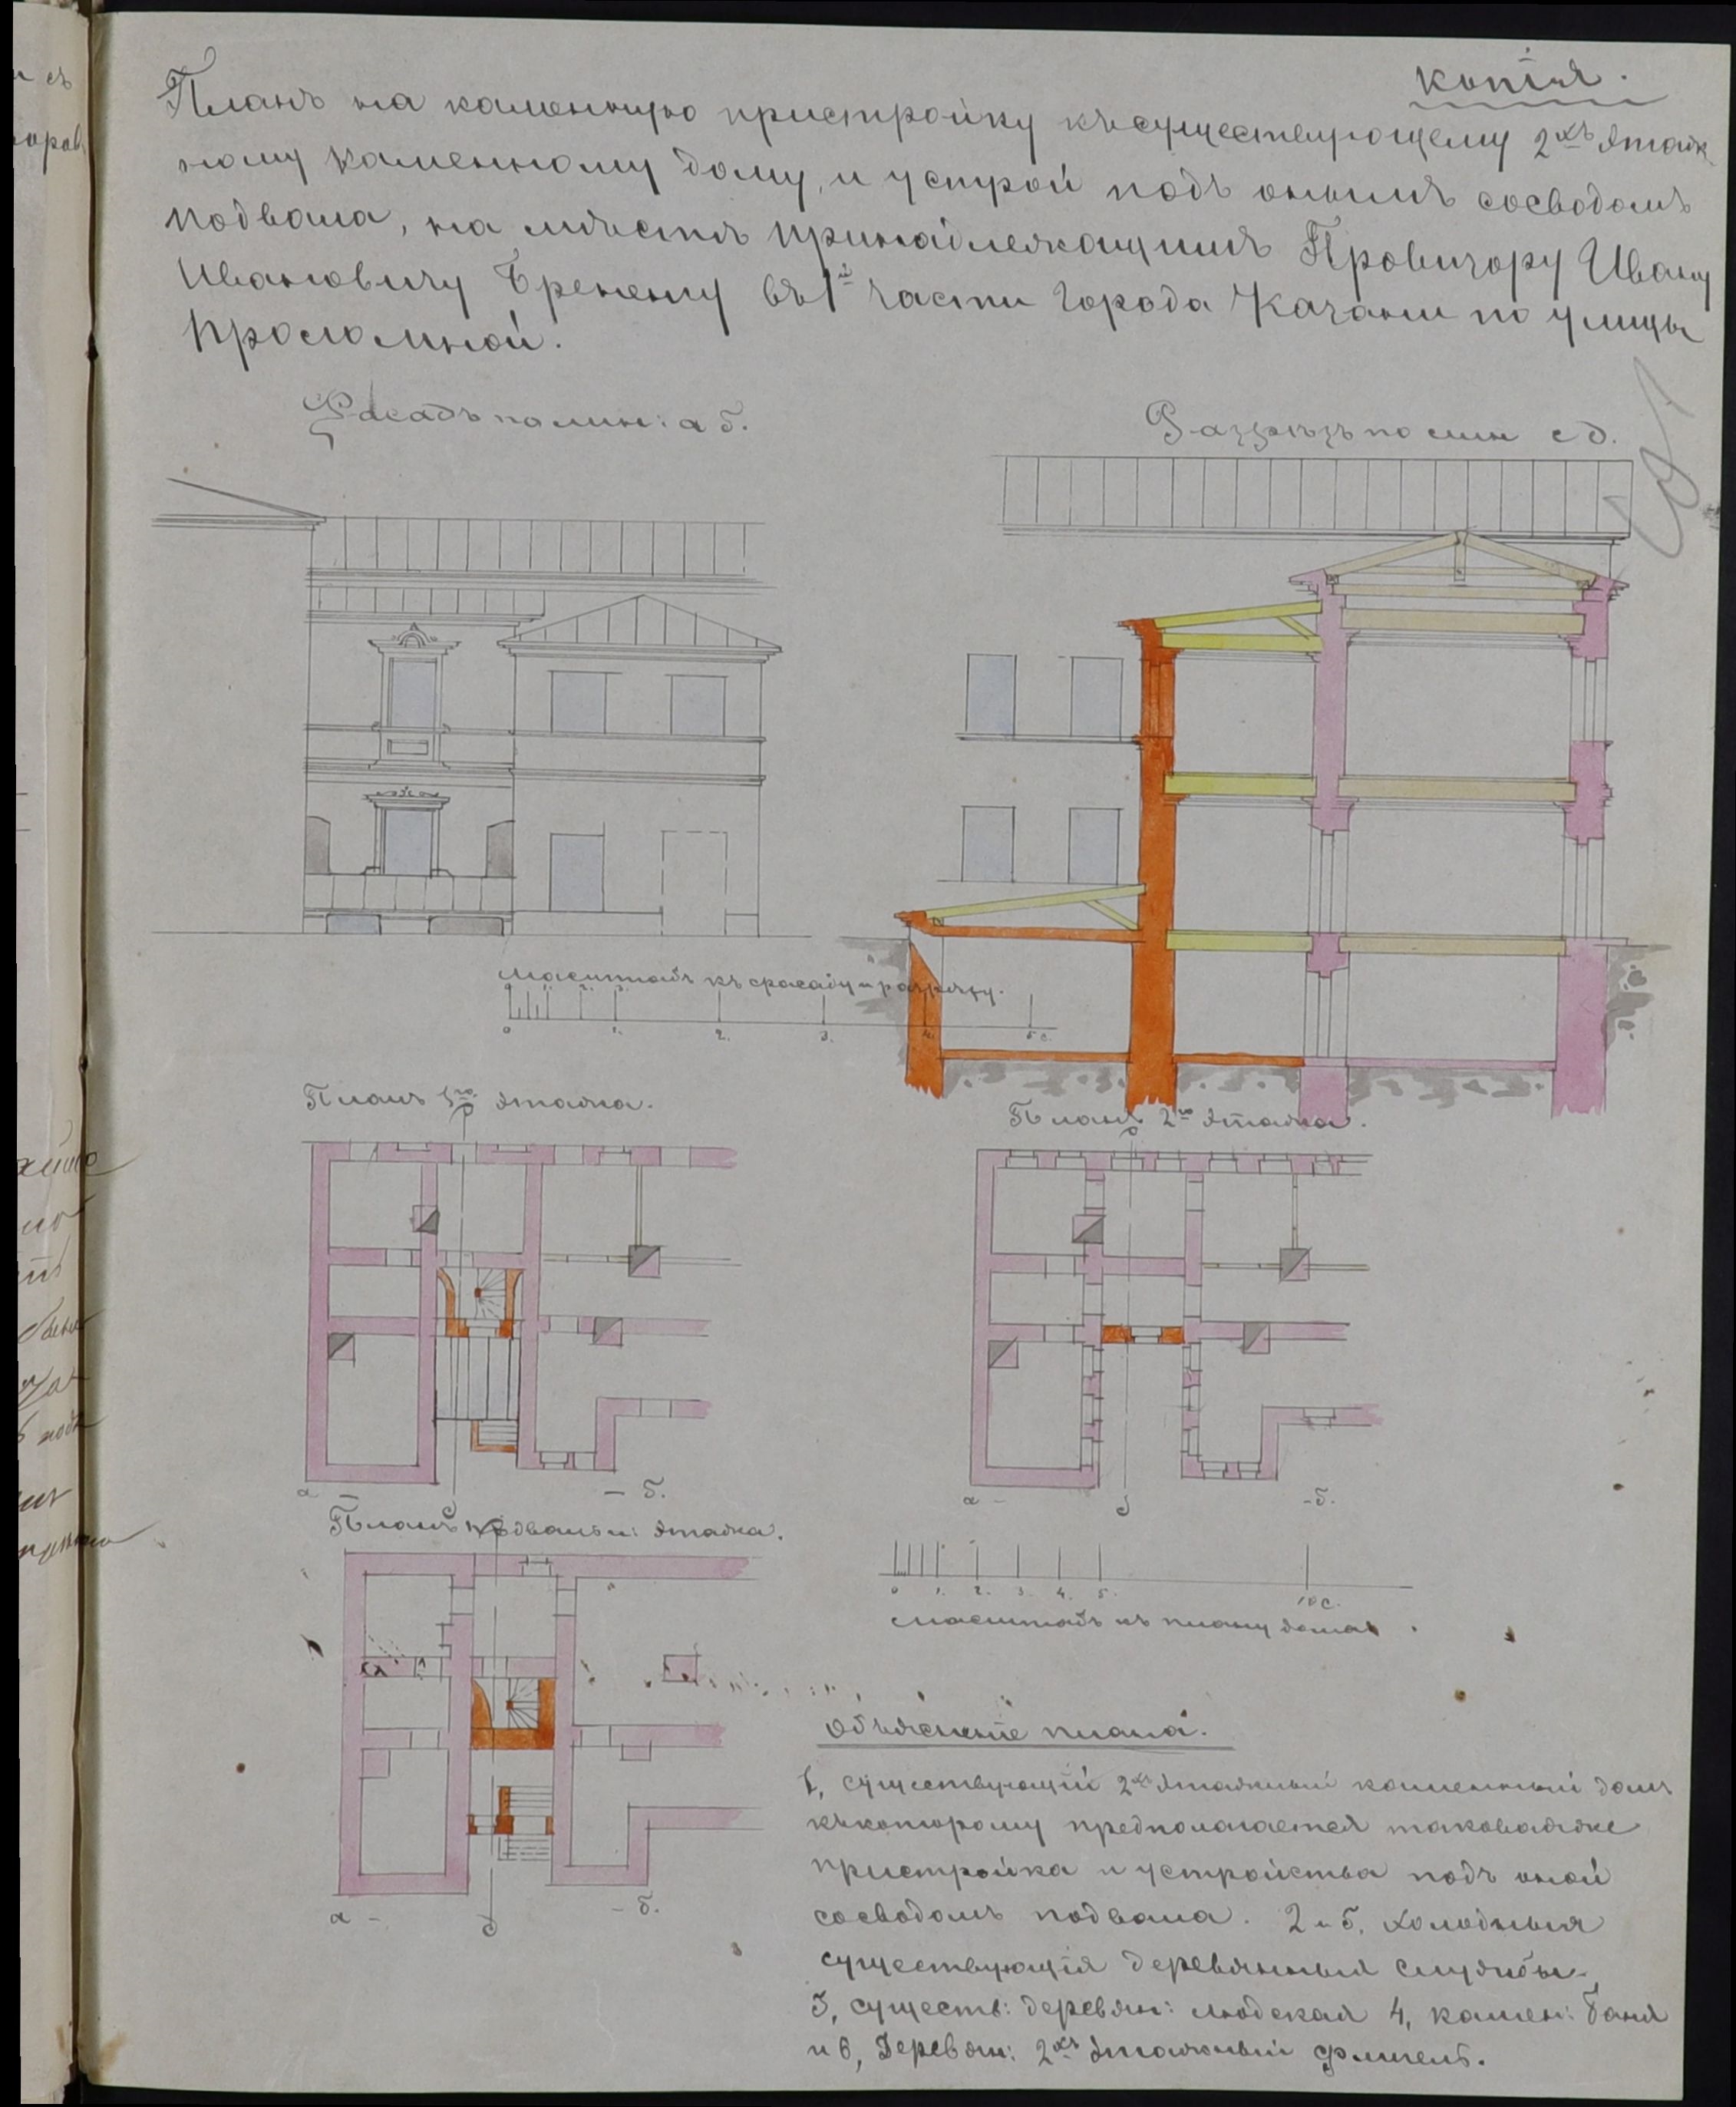 копія.
Планъ на каменную пристройку къ существующему 2хъ этаж
ному каменному дому, и устрой подъ онымъ сосводомъ
подвала, на мѣстѣ принадлежащимъ Провизору Ивану
Ивановичу Бренену въ 1й части города Казани по улицы
Проломной.
Фасадъ по лин: а б.
Разрѣзъ по лин с д.
Масштабъ къ фасаду и разрѣзу.
0 1. 2. 3. 4. 5 с.
Планъ 1го этажа.
Планъ 2го этажа.
а – б.
а – б.
Планъ подвальн: этажа.
0 1. 2. 3. 4. 5. 10 с.
Масштабъ къ плану дома
а – б.
Объясненіе плана.
1, существующій 2хъ этажный каменный домъ
къ которому предполагается таковая же
пристройка и устройства подъ оной
сосводомъ подвала. 2 и 5, холодныя
существующія деревянныя службы
3, существ: деревян: людская 4, камен: баня
и 6, Деревян: 2хъ этажный флигель.